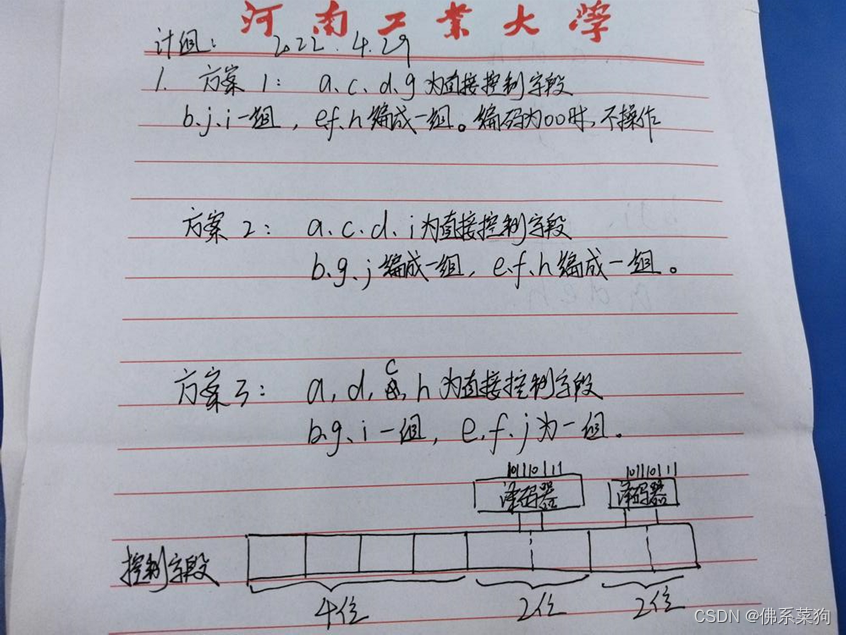 河南工业大学
计组: 2022.4.29
1. 方案1: a、c、d、g为直接控制字段
b、j、i一组,e、f、h编成一组。编码为00时,不操作
方案2: a、c、d、i为直接控制字段
b、g、j编成一组,e、f、h编成一组。
方案3: a,d,c,h为直接控制字段
b、g、i一组,e、f、j为一组。
译码器 译码器
控制字段
4位 2位 2位
CSDN @佛系菜狗